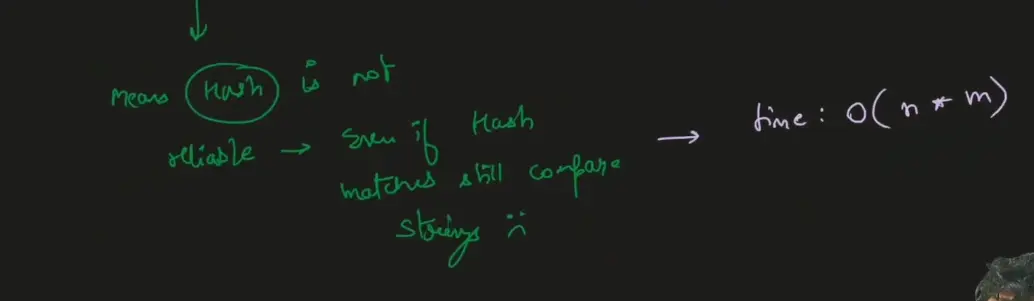 means Hash is not
reliable → Even if Hash
matches still compare
strings :(
→ time: O(n * m)